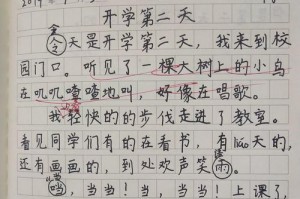 开学第二天
今天是开学第二天，我来到校
园门口。听见了一棵大树上的小鸟
在叽叽喳喳地叫，好像在唱歌。
我轻快的的步伐走进了教室。
看见同学们有的在看书，有liáo天的，
还有画画的，到处欢声笑雨
当，当当！当，当当！上课了，